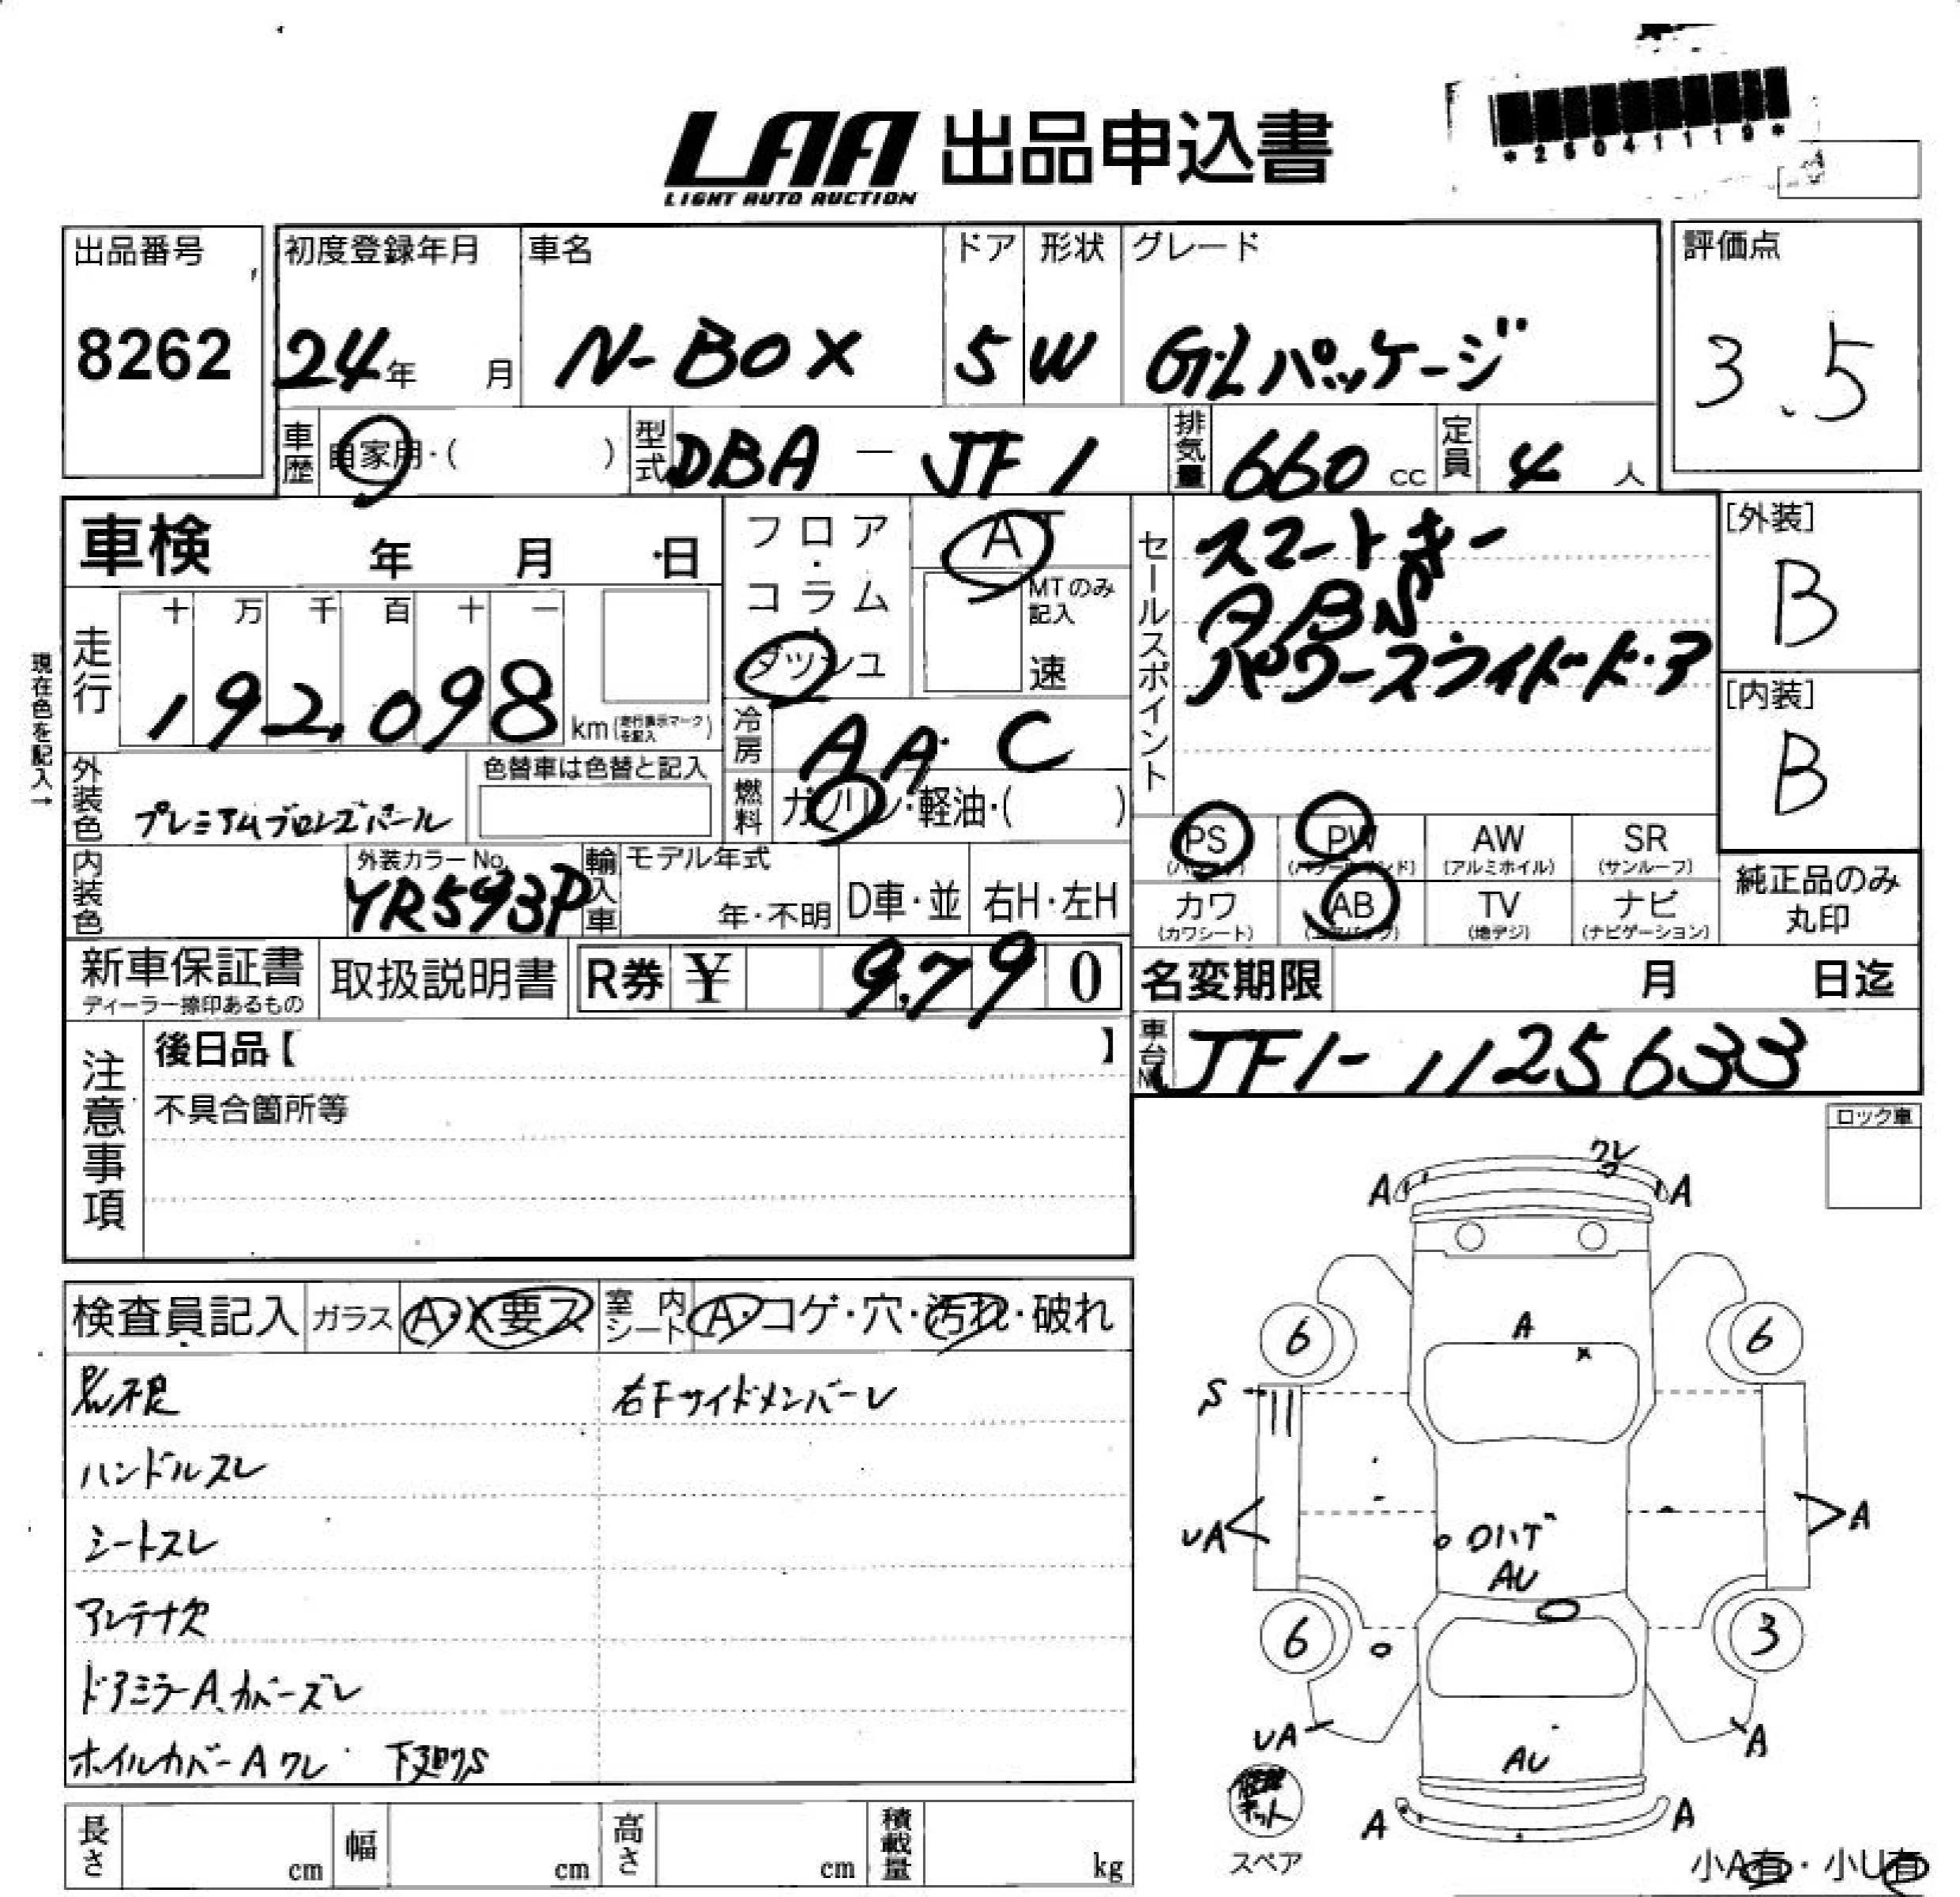 *25041119*
LAA 出品申込書
LIGHT AUTO AUCTION
出品番号
8262
初度登録年月
24年 月
車名
N-BOX
ドア
5
形状
W
グレード
G・Lパッケージ
評価点
3.5
車歴
自家用・( )
型式
DBA - JF1
排気量
660cc
定員
4人
車検 年 月 日
現在色を記入→
走行
十 万 千 百 十 一
192,098
km (走行表示マークを記入)
フロア・コラム・ダッシュ
AT
MTのみ記入
速
セールスポイント
スマートキー
ABS
パワースライドドア
[外装]
B
[内装]
B
外装色
プレミアムブロンズパール
色替車は色替と記入
冷房
AAC
燃料
ガソリン・軽油・( )
内装色
外装カラーNo.
YR593P
輸入車
モデル年式
年・不明
D車・並
右H・左H
PS
PW
AW
(アルミホイル)
SR
(サンルーフ)
カワ
(カワシート)
AB
(エアバッグ)
TV
(地デジ)
ナビ
(ナビゲーション)
純正品のみ
丸印
新車保証書
ディーラー捺印あるもの
取扱説明書
R券 ¥ 9,790
名変期限 月 日迄
車台No.
JF1-1125633
注意事項
後日品【 】
不具合箇所等
ロック車
検査員記入
ガラス
A・X要ス
室内シート
A・コゲ・穴・汚れ・破れ
右Fサイドメンバーレ
ハンドルスレ
シートスレ
アンテナ欠
ドアミラーA、カバーズレ
ホイルカバーAワレ 下廻りS
ワレ
A A
6 A 6
S
UA A
ロハゲ
AU
6 3
UA AU A
A A
キット
スペア
小A有・小U有
長さ cm
幅 cm
高さ cm
積載量 kg